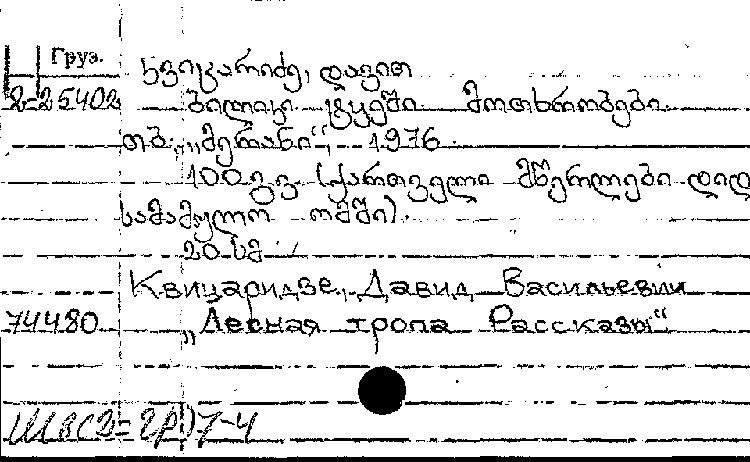 Груз.
კვიცარიძე, დავით
2-25402 ბილიკი ტყეში. მოთხრობები.
თბ., „მერანი“, 1976.
100 გვ. (ქართველი მწერლები დიდ
სამამულო ომში).
20 სმ
Квицаридзе, Давид Васильевич
74480 „Лесная тропа Рассказы“